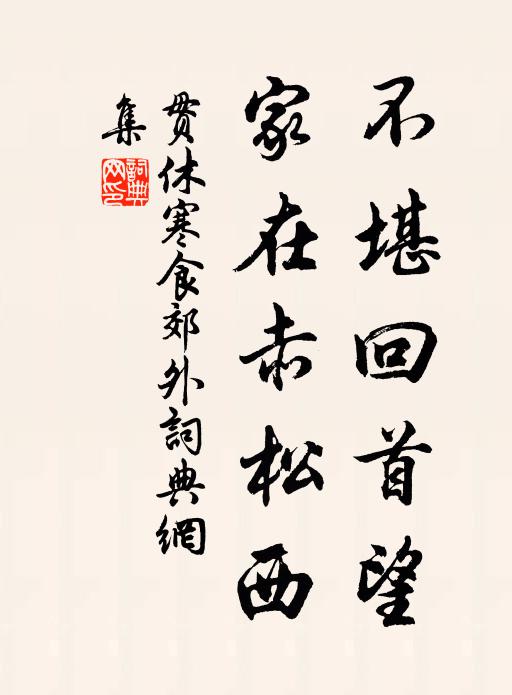 不堪回首望
家在赤松西
贯休寒食郊外詞典網
集
詞典
网印